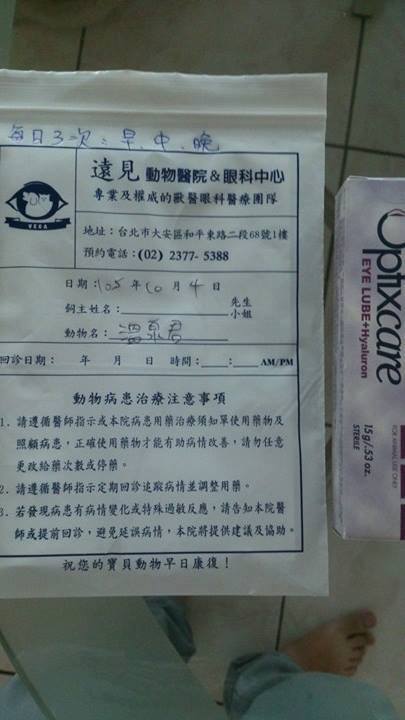 每日3次：早、中、晚
遠見動物醫院&眼科中心
專業及權威的獸醫眼科醫療團隊
VEGA
地址：台北市大安區和平東路二段68號1樓
預約電話：(02) 2377-5388
日期：105年10月4日
飼主姓名：先生小姐
動物名：溫泉君
回診日期： 年 月 日 時間：__:__AM/PM
動物病患治療注意事項
1. 請遵循醫師指示或本院病患用藥治療須知單使用藥物及
照顧病患，正確使用藥物才能有助病情改善，請勿任意
更改給藥次數或停藥。
2. 請遵循醫師指示定期回診追蹤病情並調整用藥。
3. 若發現病患有病情變化或特殊過敏反應，請告知本院醫
師或提前回診，避免延誤病情，本院將提供建議及協助。
祝您的寶貝動物早日康復！
Optixcare
EYE LUBE+Hyaluron
15g/.53 oz.
STERILE
FOR ANIMAL USE ONLY